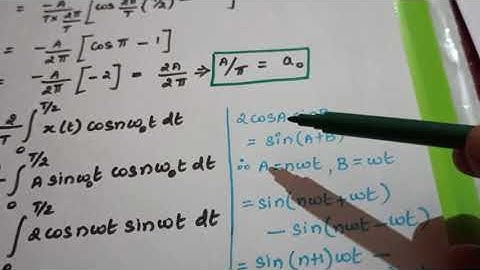 = -A / T × 2π/T [cos 2π/T (T/2) -
= -A/2π [cosπ - 1]
= -A/2π [-2] = 2A/2π ⇒ A/π = a₀
2/T ∫₀^T/2 x(t) cosnω₀t dt
∫₀^T/2 A sinω₀t cosnω₀t dt
∫₀^T/2 2cosnωt sinωt dt
2cosA
= sin(A+B)
∴ A=nωt, B=ωt
= sin(nωt+ωt)
- sin(nωt-ωt)
= sin(n+1)ωt -